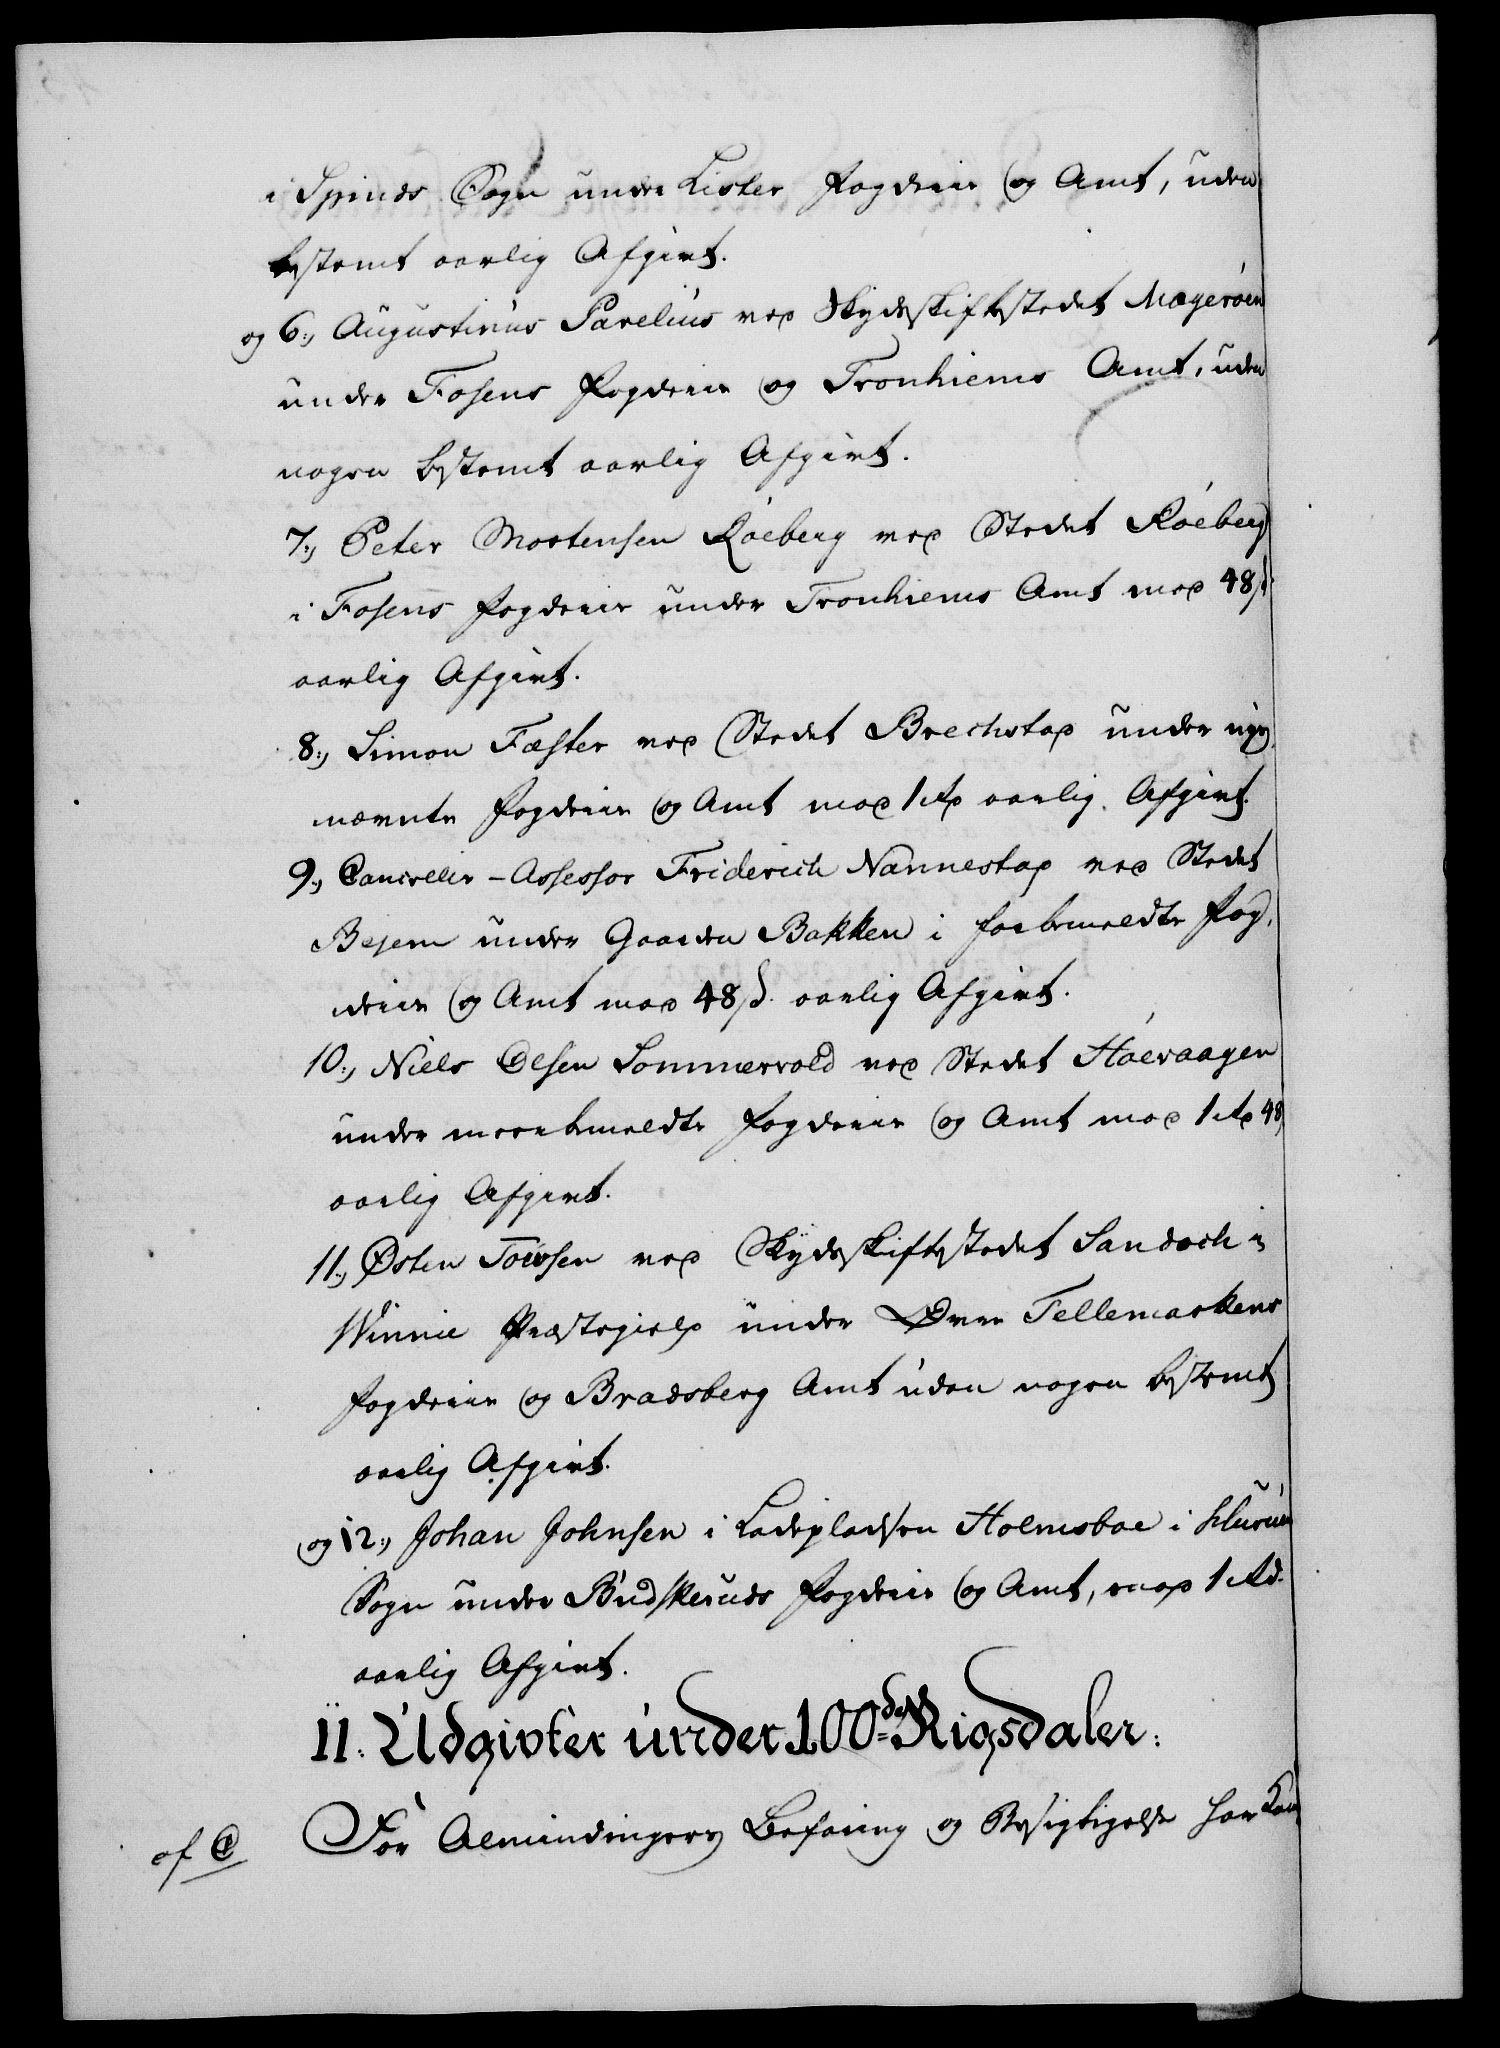 i Spinds Sogn under Lister Fogderie og Amt, uden
bestemt aarlig Afgivt.
og 6., Augustinus Parelius ved Skydsskiftestedet Magerøen
under Fosens Fogderie og Tronhiems Amt, uden
nogen bestemt aarlig Afgivt.
7., Peter Mortensen Röeberg ved Stedet Röeberg
i Fosens Fogderie under Tronhiems Amt mod 48 ß
aarlig Afgivt.
8., Simon Fæster ved Stedet Brechstad under nys
nævnte Fogderie og Amt mod 1 Rd aarlig Afgivt.
9., Cancelie-Assessor Friderich Nannestad ved Stedet
Bejern under Gaarden Bakken i forbemeldte Fog,
derie og Amt mod 48 ß. aarlig Afgivt.
10., Niels Olsen Sommervold ved Stedet Höevaagen
under meerbemeldte Fogderie og Amt mod 1 Rd 48
aarlig Afgivt.
11., Østen Toresen ved Skydsskiftestedet Sandoch i
Winnie Præstegield under Øvre Tellemarkens
Fogderie og Bradsberg Amt uden nogen bestemt
aarlig Afgivt.
og 12., Johan Johnsen i Ladepladsen Holmsboe i Hurum
Sogn under Budskeruds Fogderie og Amt, mod 1 Rd.
aarlig Afgivt.
II. Udgivter under 100de Rigsdaler.
af C For Almindingers Befaring og Besigtigelse har